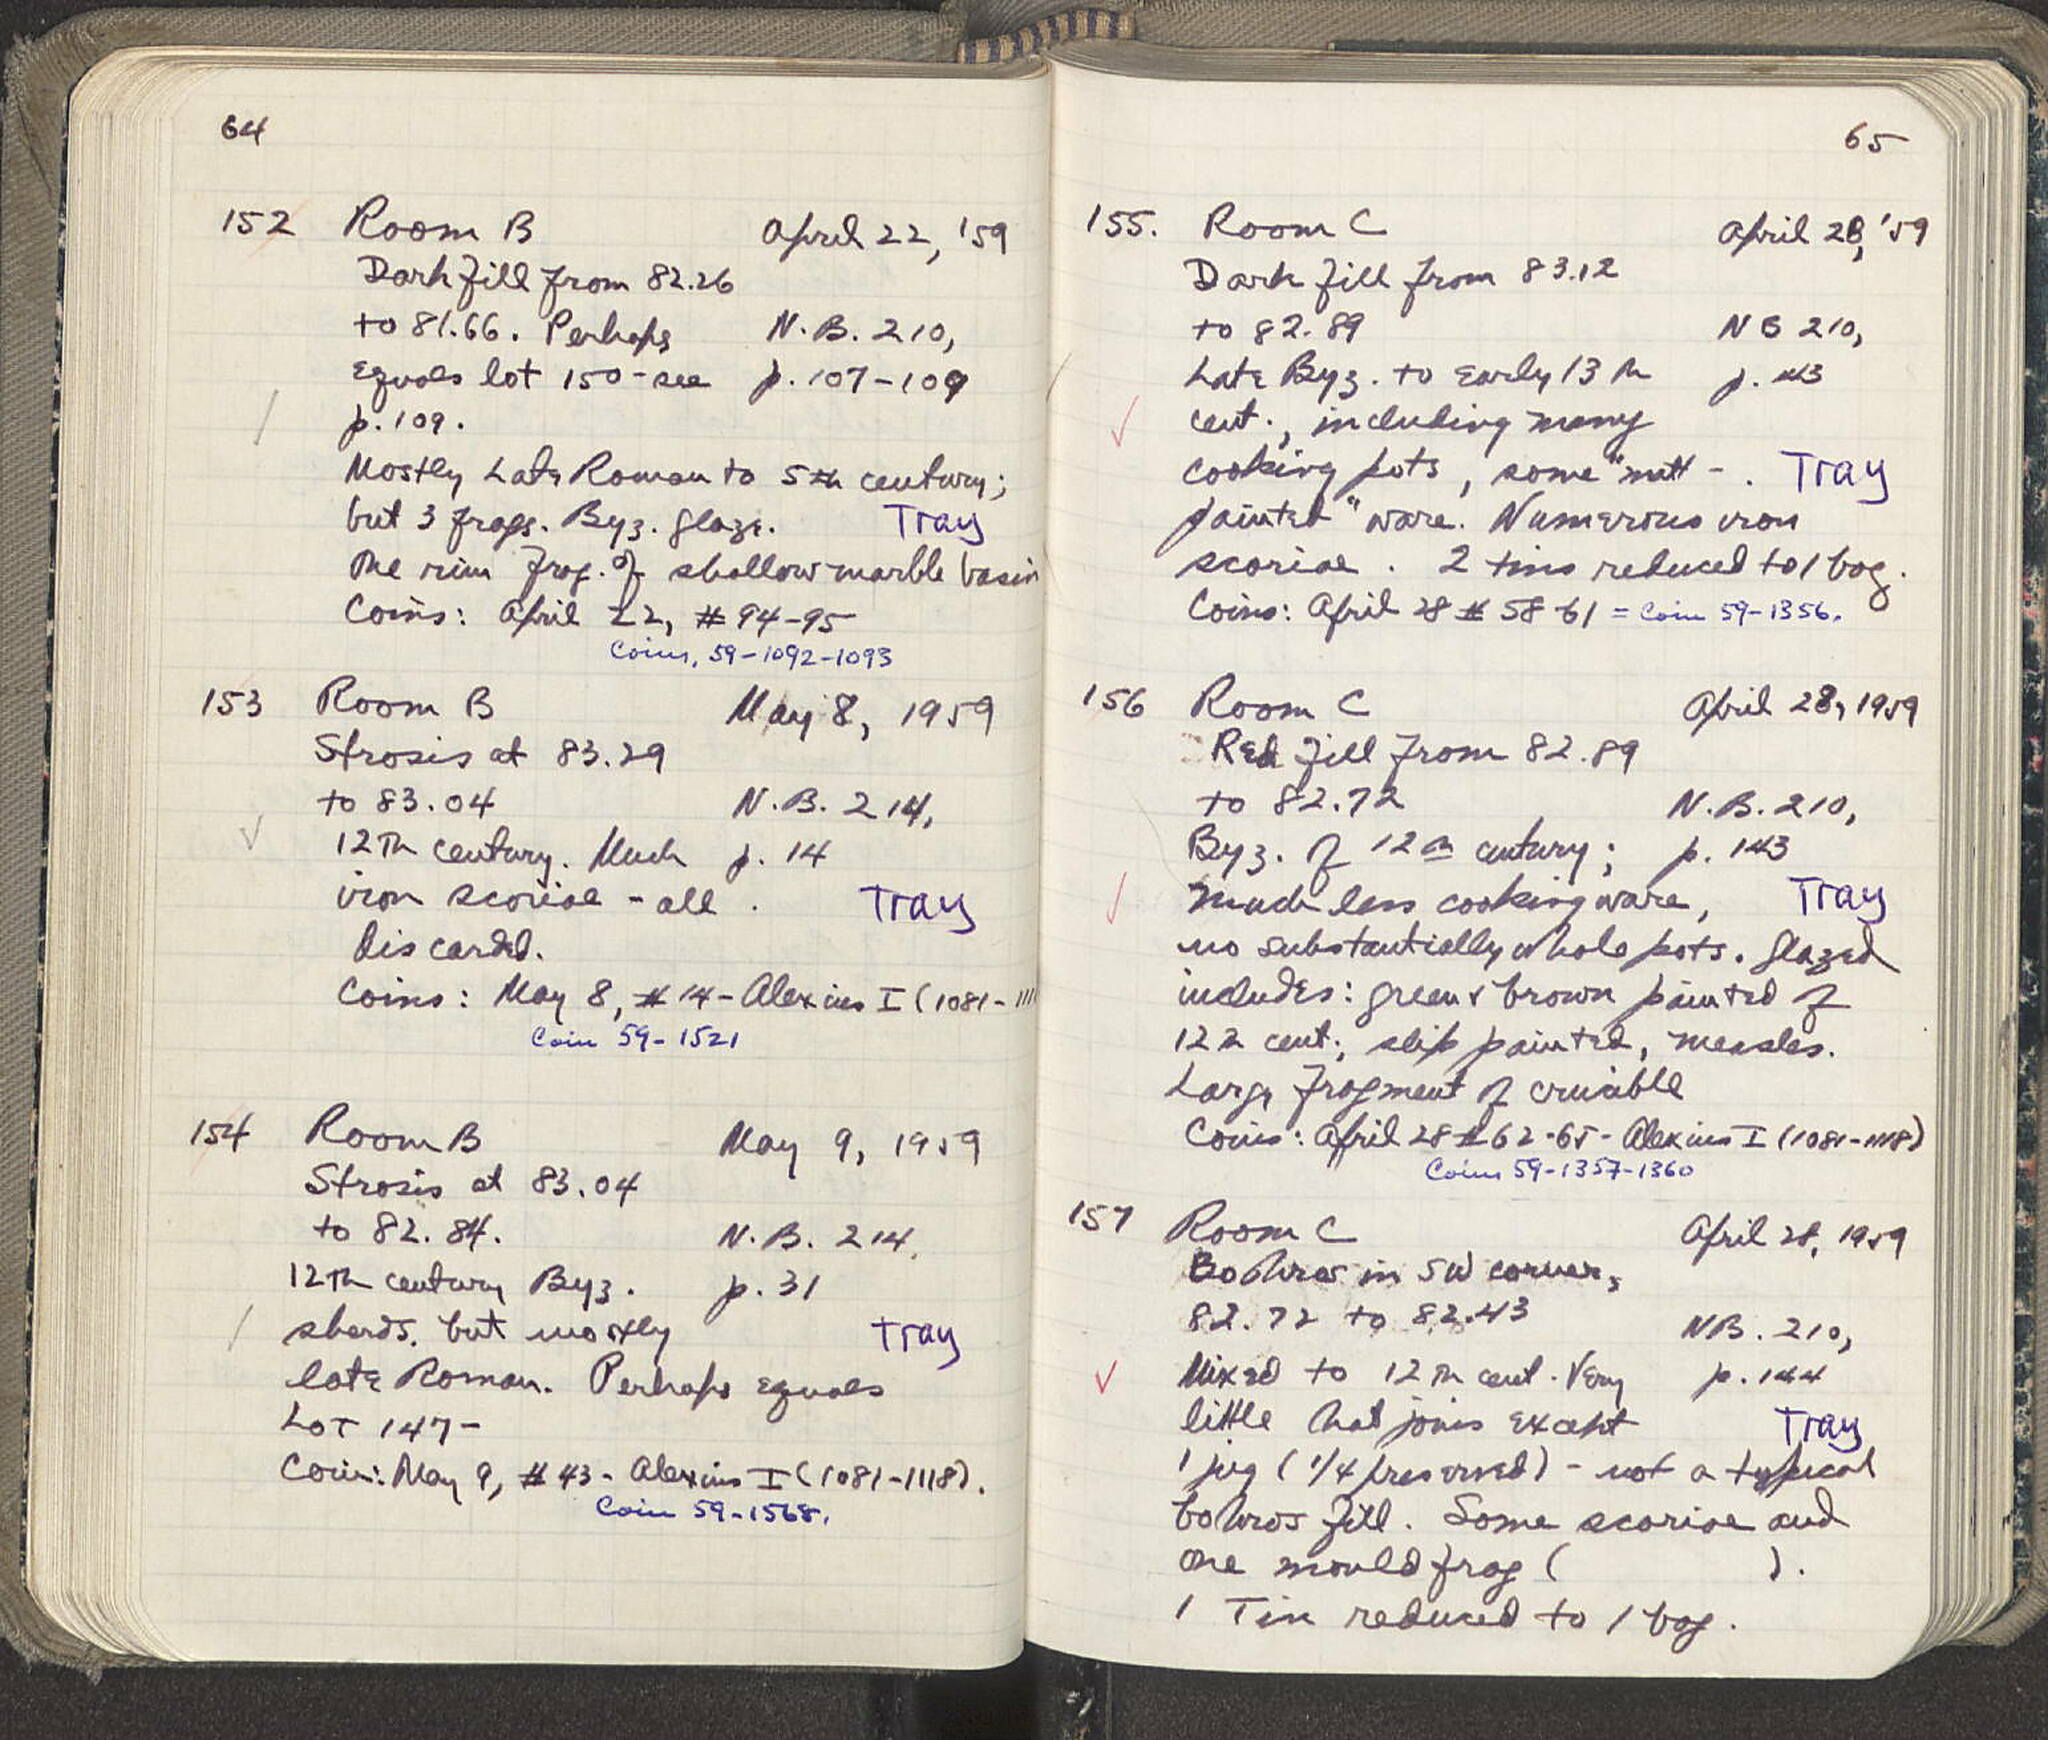 64
152 Room B April 22, '59
Dark fill from 82.26
to 81.66. Perhaps N.B. 210,
equals lot 150 - see p. 107-109
p. 109.
Mostly Late Roman to 5th century;
but 3 frags. Byz. glaze. Tray
One rim frag. of shallow marble basin
Coins: April 22, # 94-95
Coins, 59-1092-1093
153 Room B May 8, 1959
Strosis at 83.29
to 83.04 N.B. 214,
12th century. Much p. 14
iron scoriae - all. Tray
discarded.
Coins: May 8, # 14 - Alexius I (1081-111
Coin 59-1521
154 Room B May 9, 1959
Strosis at 83.04
to 82.84. N.B. 214,
12th century Byz. p. 31
sherds, but mostly Tray
late Roman. Perhaps equals
Lot 147-
Coin: May 9, # 43 - Alexius I (1081-1118).
Coin 59-1568.
65
155. Room C April 28, '59
Dark fill from 83.12
to 82.89 NB 210,
Late Byz. to early 13th p. 143
cent., including many
cooking pots, some "matt-. Tray
painted" ware. Numerous iron
scoriae. 2 tins reduced to 1 bag.
Coins: April 28 # 58-61 = Coin 59-1356.
156 Room C April 28, 1959
Red fill from 82.89
to 82.72 N.B. 210,
Byz. of 12th century; p. 143
much less cooking ware, Tray
no substantially whole pots. Glazed
includes: green & brown painted of
12th cent., slip painted, measles.
Large fragment of crucible
Coins: April 28 # 62-65 - Alexius I (1081-1118)
Coins 59-1357-1360
157 Room C April 28, 1959
Bothros in SW corner,
82.72 to 82.43 NB. 210,
Mixed to 12th cent. Very p. 144
little that joins except Tray
1 jug (1/4 preserved) - not a typical
bothros fill. Some scoriae and
one mould frag ( ).
1 Tin reduced to 1 bag.